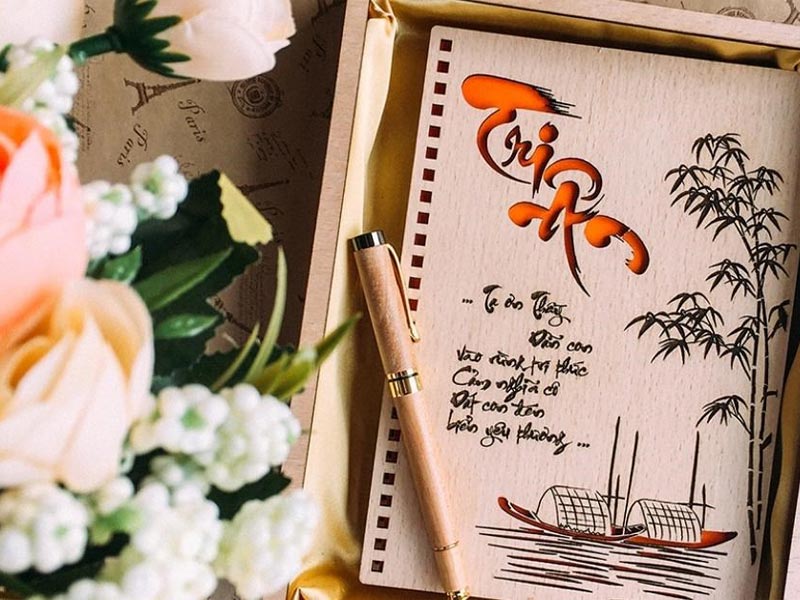 Tri
Ân
... Tạ ơn Thầy
Dẫn con
vào rừng tri thức
Cảm nghĩa cô
Dắt con đến
biển yêu thương ...
Paris
Paris